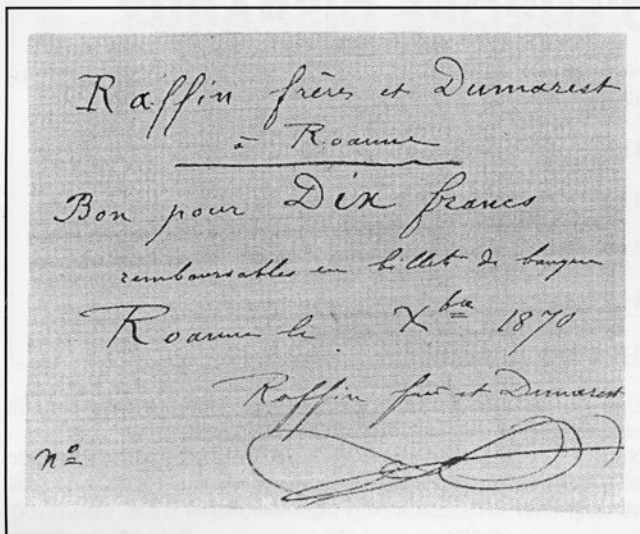 Raffin frères et Dumarest
à Roanne
Bon pour Dix francs
remboursables en billets de banque
Roanne le Xbre 1870
Raffin frères et Dumarest
Nº